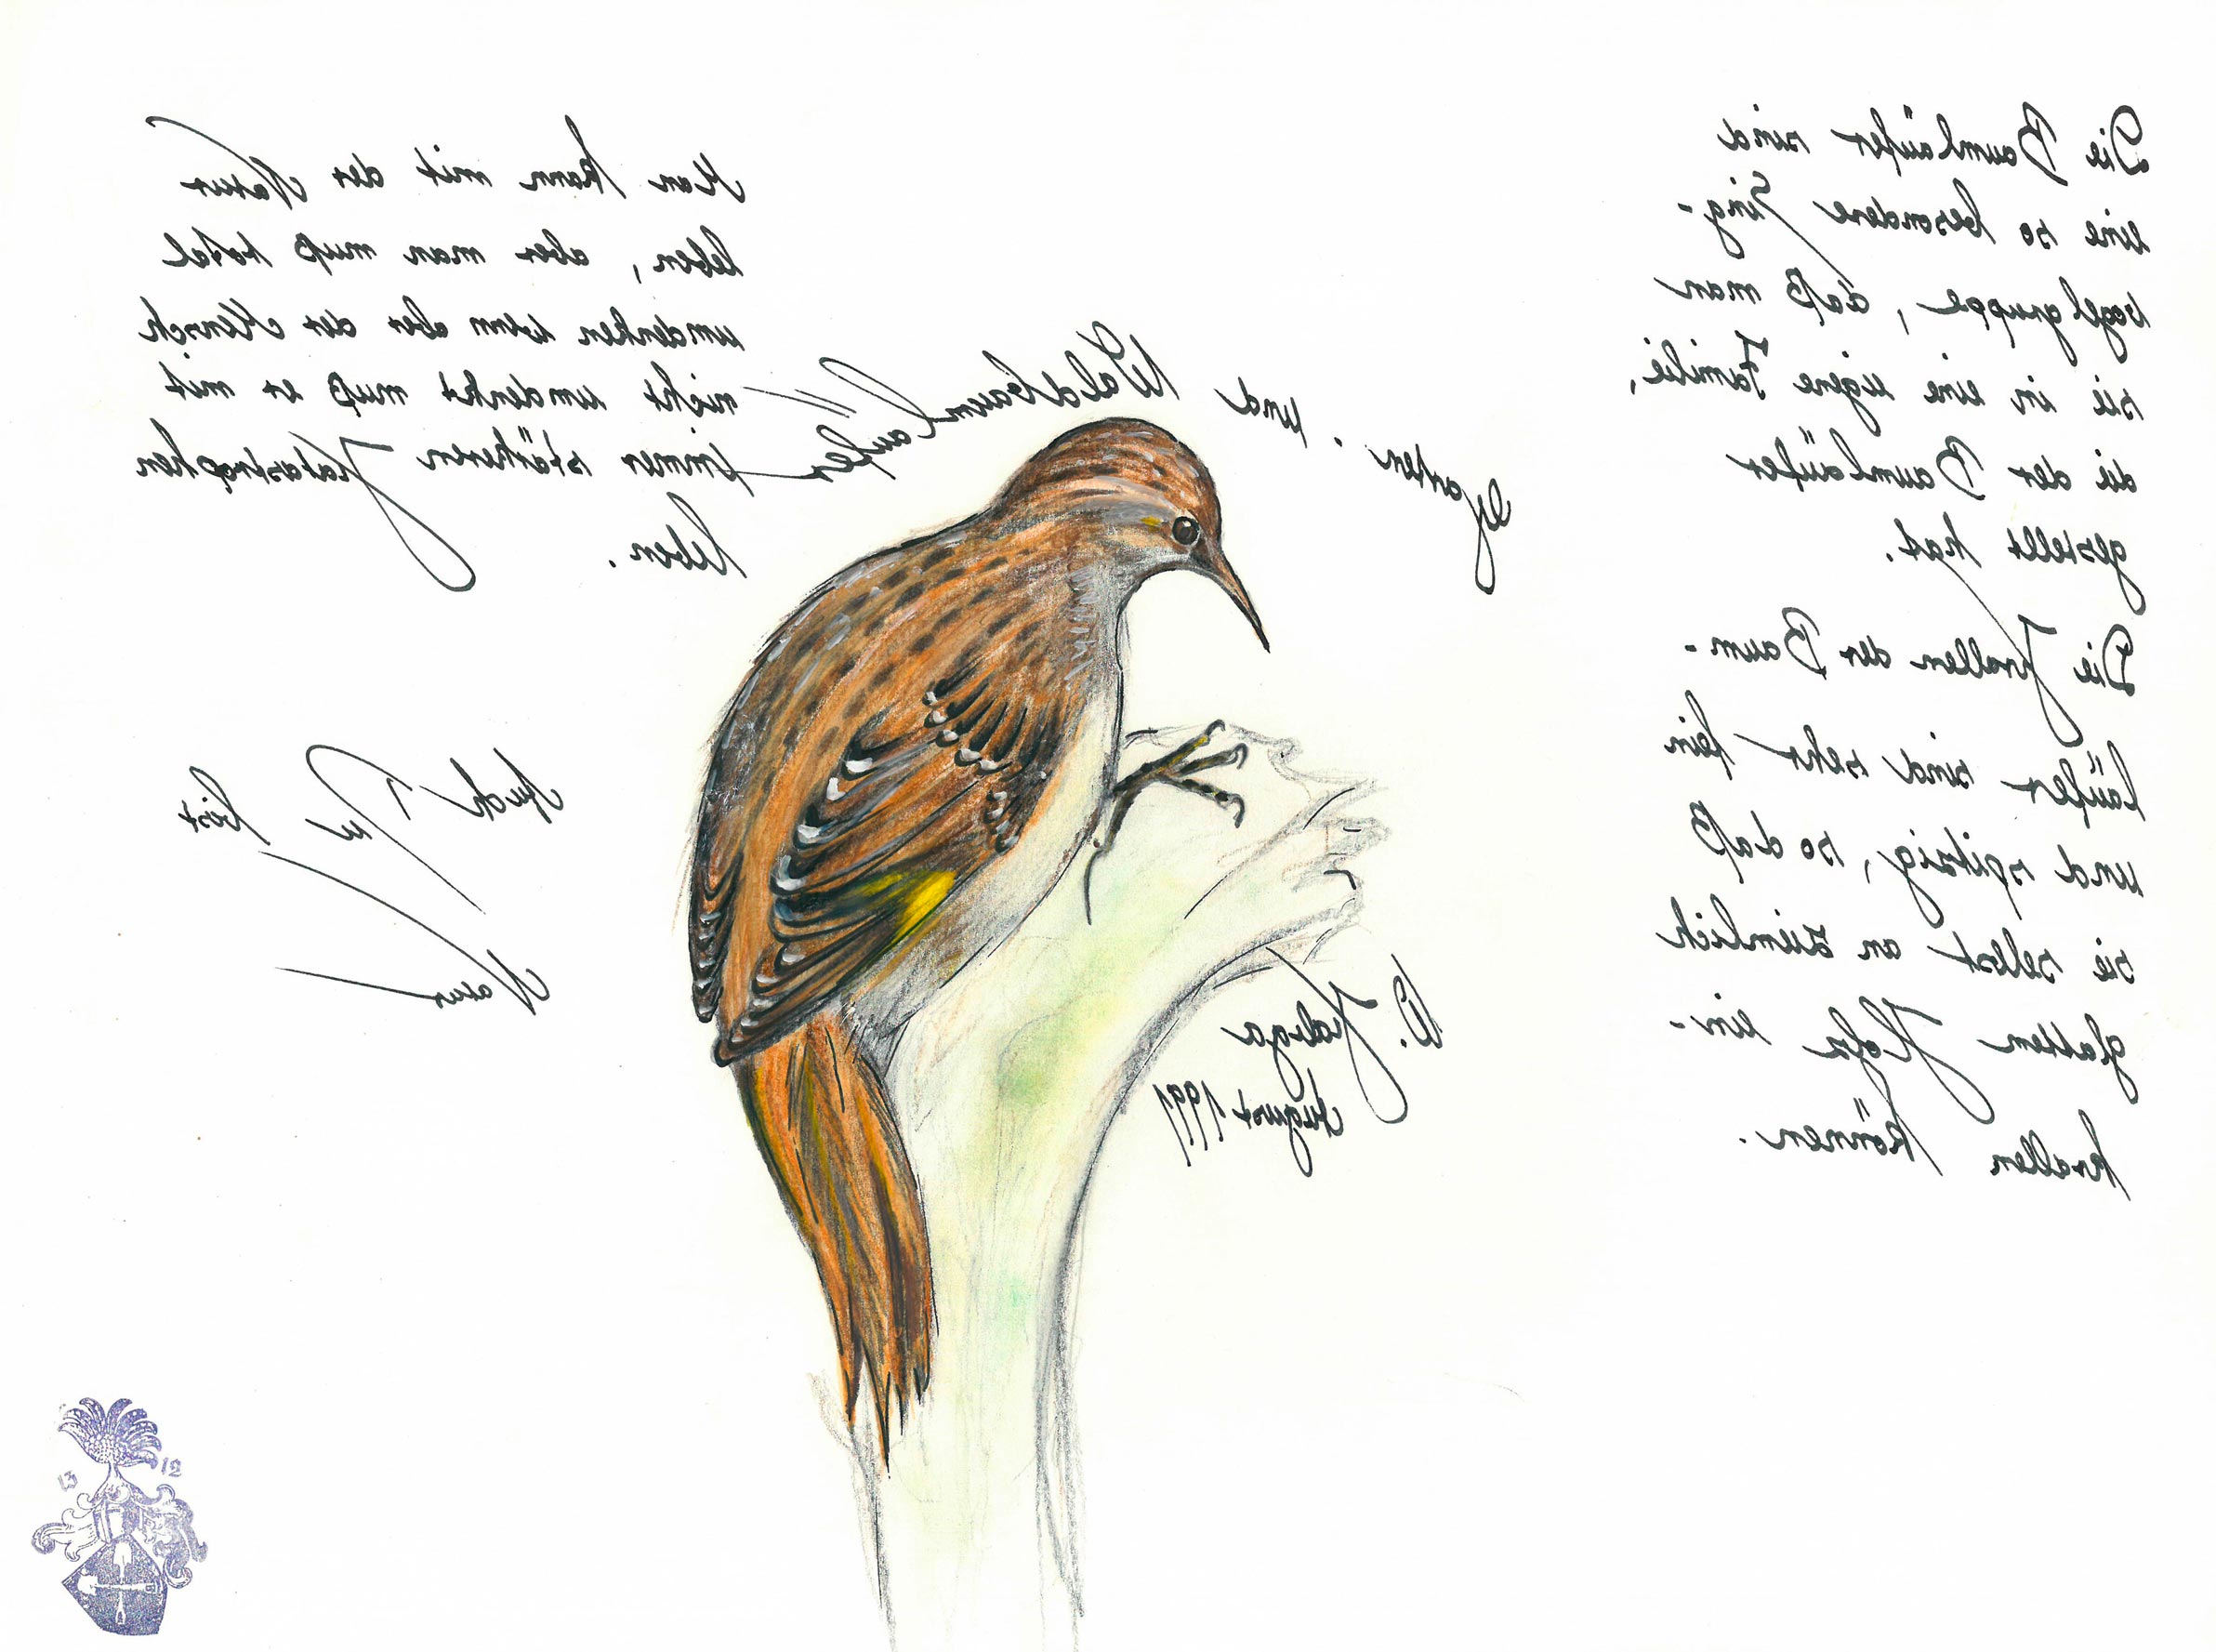 Die Baumläufer sind
eine so besondere Sing-
vogelgruppe, daß man
sie in eine eigene Familie,
die der Baumläufer
gestellt hat.
Die Krallen der Baum-
läufer sind sehr fein
und spitzig, so daß
sie selbst an ziemlich
glatten Holz ein-
krallen können.
Garten - und Waldbaumläufer
Man kann mit der Natur
leben, aber man muß total
umdenken wenn aber der Mensch
nicht umdenkt muß er mit
immer stärkeren Katastrophen
leben.
Auch Du bist
Natur
W.
August 1991
13 12